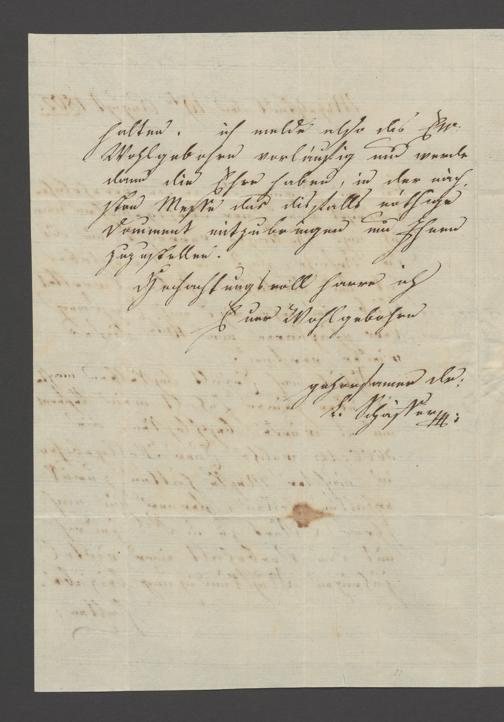 halten. ich melde also dis Ew.
Wohlgebohrn vorläufig und werde
dann die Ehre haben, in der näch,
sten Messe das disfalls nöthige
Document mitzubringen und Ihnen
zuzustellen.
Hochachtungsvoll harre ich
Euer Wohlgebohrn
gehorsamer Dr.
Schäffer